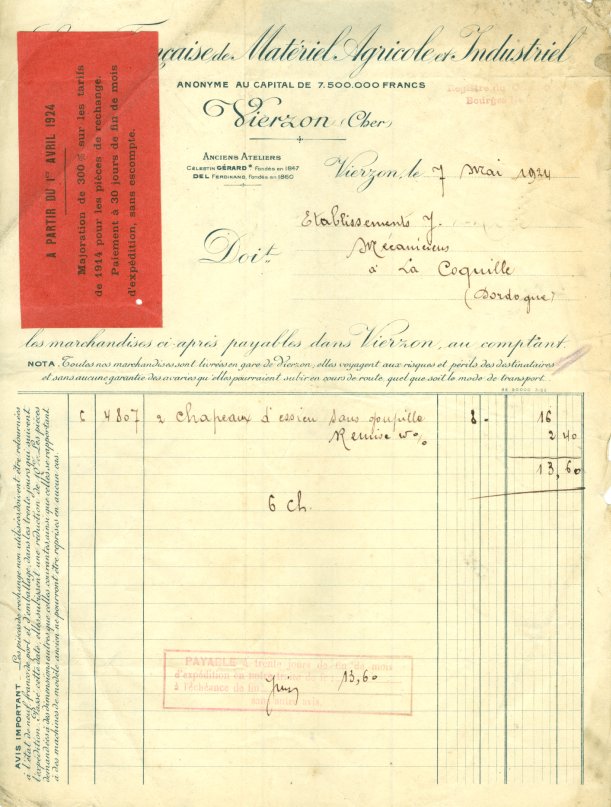 Française de Matériel Agricole et Industriel
ANONYME AU CAPITAL DE 7.500.000 FRANCS
Registre du
Bourges
Vierzon (Cher)
ANCIENS ATELIERS
CÉLESTIN GÉRARD Fondés en 1847
DEL FERDINAND, Fondés en 1860
Vierzon, le 7 Mai 1924
A PARTIR DU 1er AVRIL 1924
Majoration de 300 % sur les tarifs
de 1914 pour les pièces de rechange.
Paiement à 30 jours de fin de mois
d'expédition, sans escompte.
Doit
Etablissements J.
Mécaniciens
à La Coquille
(Dordogne)
les marchandises ci-après payables dans Vierzon, au comptant.
NOTA. Toutes nos marchandises sont livrées en gare de Vierzon, elles voyagent aux risques et périls des destinataires
et sans aucune garantie des avaries qu'elles pourraient subir en cours de route, quel que soit le mode de transport.
C 4807 2 Chapeaux d'essieu sans goupille 8 - 16
Remise 2 40
13,60
6 Ch.
PAYABLE à trente jours de fin de mois
d'expédition
à l'échéance de fin Juin 13,60
sans autre avis.
AVIS IMPORTANT _ Les pièces de rechange non utilisées doivent être retournées
à l'état de neuf, franco de port et d'emballage, dans les trente jours qui suivent
l'expédition. Passé cette date, elles subissent une réduction de 10%. Les pièces
demandées à des dimensions autres que celles courantes ainsi que celles se rapportant
à des machines de modèle ancien ne pourront être reprises en aucun cas.